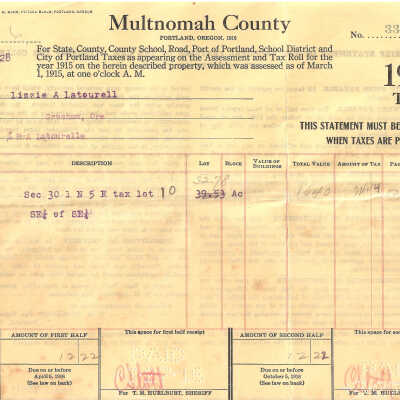 Multnomah County
PORTLAND, OREGON, 1916
No. 33
28
For State, County, County School, Road, Port of Portland, School District and
City of Portland Taxes as appearing on the Assessment and Tax Roll for the
year 1915 on the herein described property, which was assessed as of March
1, 1915, at one o'clock A. M.
19
T
lizzie A Latourell
Gresham, Ore
THIS STATEMENT MUST BE
WHEN TAXES ARE P
Latourelle
DESCRIPTION LOT BLOCK VALUE OF BUILDINGS TOTAL VALUE AMOUNT OF TAX PA
32.78
Sec 30 1 N 5 E tax lot 10 39.53 Ac 1640 24.44
SE¼ of SE¼
AMOUNT OF FIRST HALF This space for first half receipt AMOUNT OF SECOND HALF This space fo
12 22 12 22
Due on or before
April 5, 1916
(See law on back)
Due on or before
October 5, 1916
(See law on back)
For T. M. HUELBURT, SHERIFF For T. M. HU